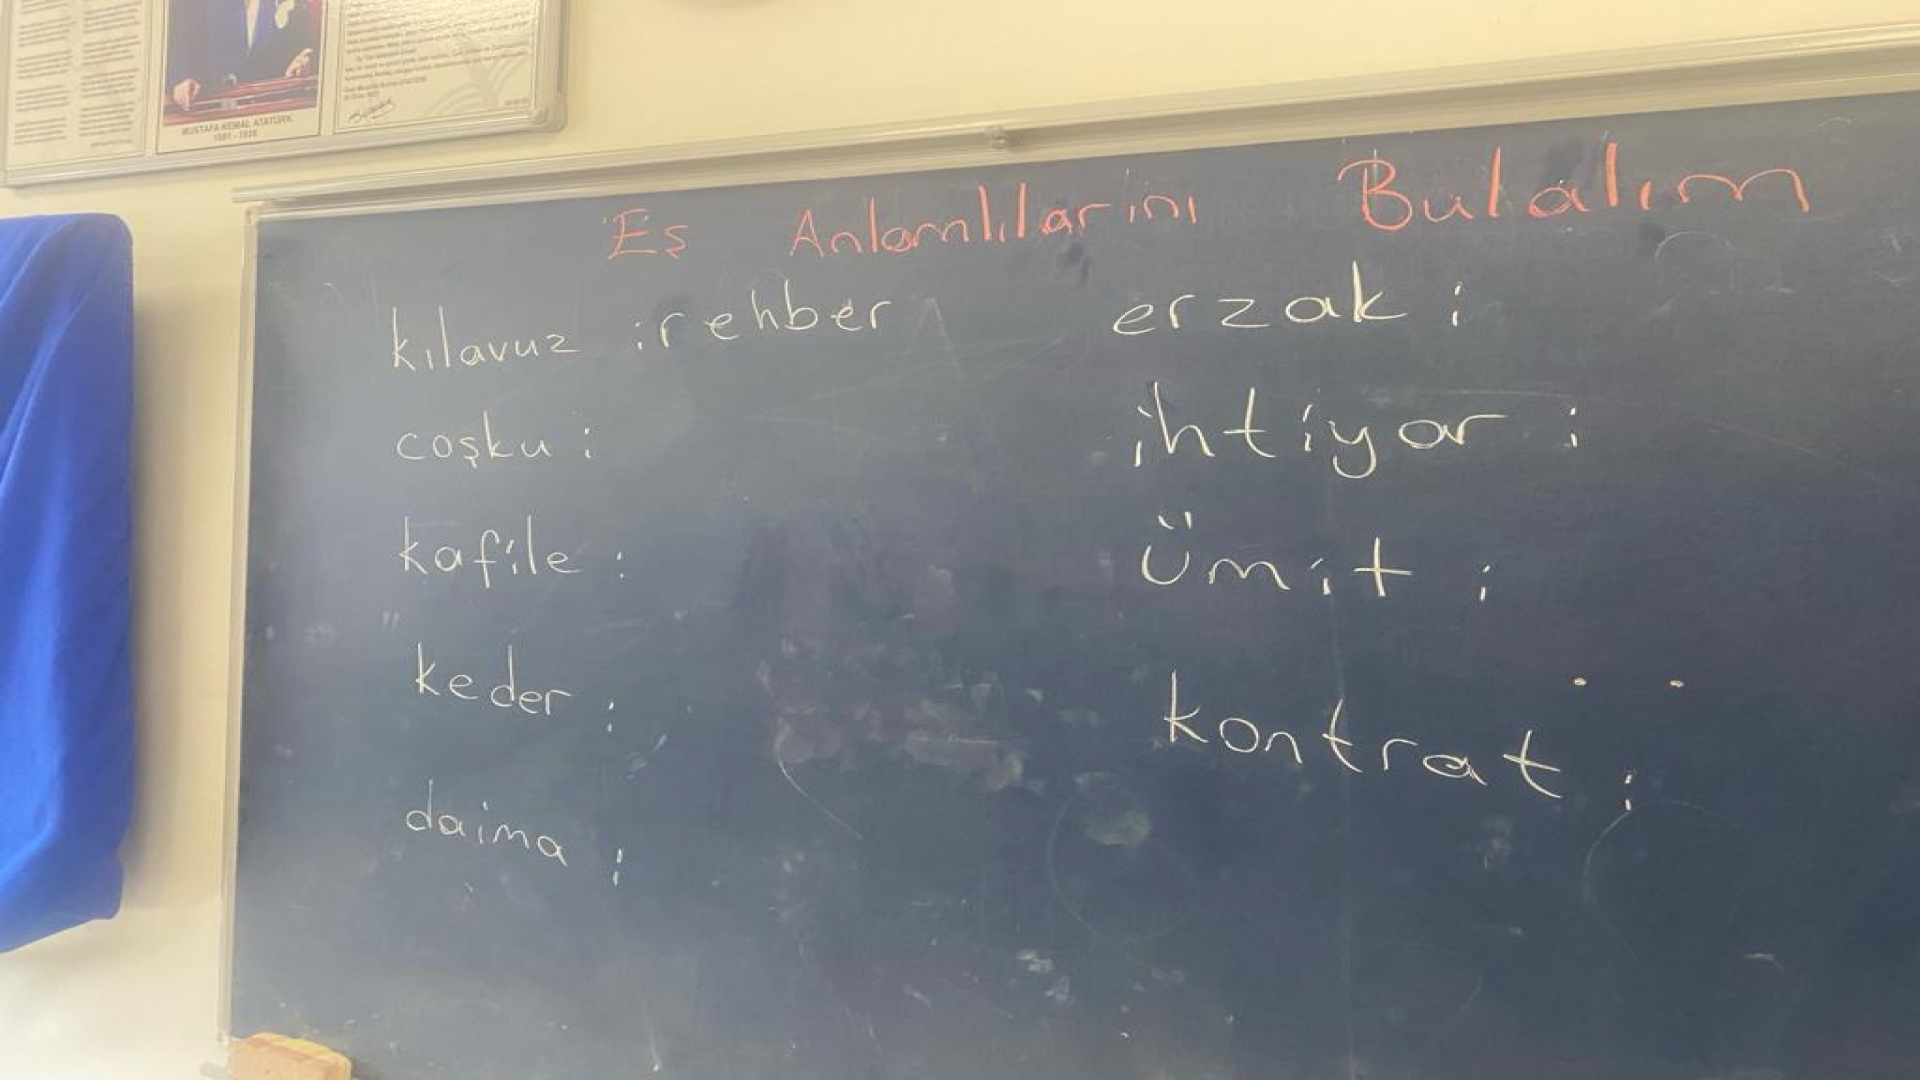 MUSTAFA KEMAL ATATÜRK
1881 - 1938
Eş Anlamlılarını Bulalım
kılavuz : rehber
coşku :
kafile :
keder :
daima :
erzak :
ihtiyar :
Ümit :
kontrat :